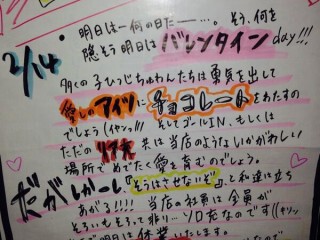 ・明日は一何の日だーーー。そう、何を
隠そう明日は バレンタインday!!!
2/14
多くの子ひつじちゅわんたちは勇気を出して
愛しのアイツにチョコレートをわたすの
でしょう(イヤン♡)!! そしてゴールIN、もしくは
ただの 共は当店のようないかがわしい
場所でめでたく愛を育むのでしょう。
だがしかーし『そうはさせないぞ』と私達は立ち
あがる!!!! 当店の社員は全員が
そろいもそろって ソロ充なのです((キリッ
明日 休業いたします。